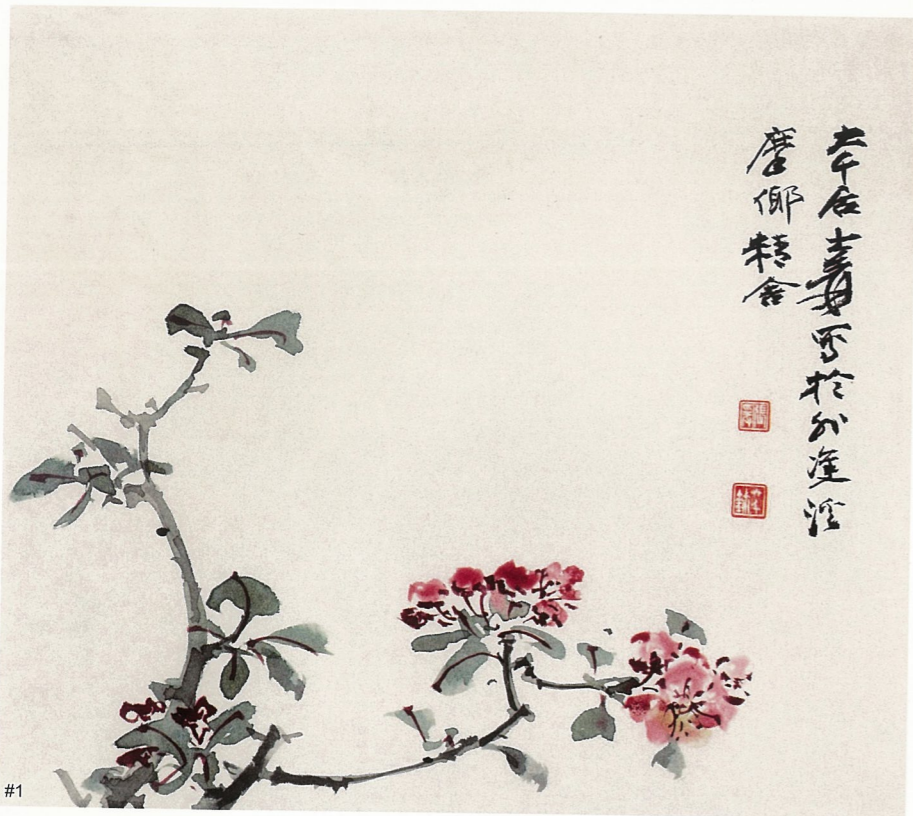 大千居士爰寫於外雙溪
摩倻精舍
#1